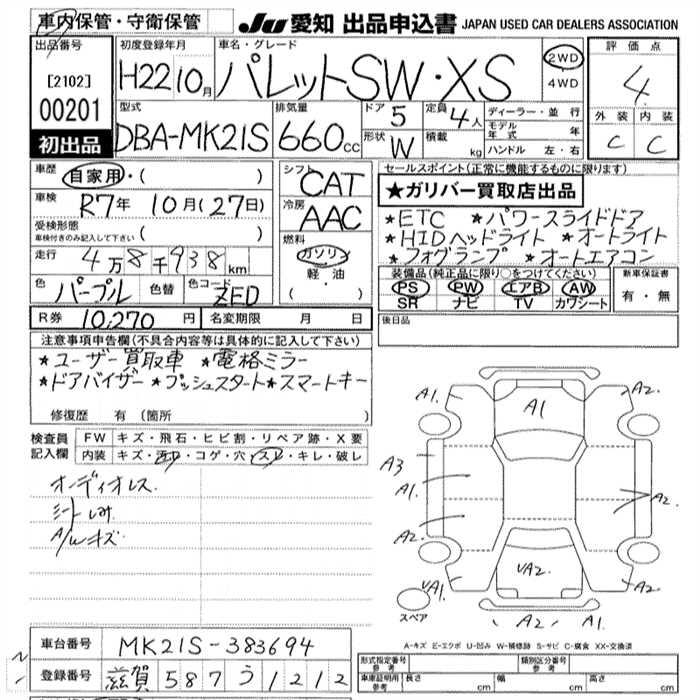 車内保管・守衛保管
JU 愛知 出品申込書 JAPAN USED CAR DEALERS ASSOCIATION
出品番号 初度登録年月 車名・グレード 評価点
[2102] H22 10月 パレットSW・XS 2WD 4WD 4
00201 外装 内装
初出品 C C
型式 排気量 ドア 5 定員 4人 ディーラー・並行
DBA-MK21S 660cc 形状 W 積載 kg モデル年式 年
ハンドル 左・右
車歴 自家用・( ) シフト CAT セールスポイント(正常に機能するものに限ります)
車検 R7年 10月(27日) 冷房 AAC ★ガリバー買取店出品
受検形態 ★ETC ★パワースライドドア
車検付きのみ記入して下さい( ) 燃料 ★HIDヘッドライト ★オートライト
走行 4万8千938km ガソリン ★フォグランプ ★オートエアコン
軽・油
・( )
色 パープル 色替 色コード ZED 装備品(純正品に限り○をつけてください) 新車保証書
PS PW エアB AW 有・無
SR ナビ TV カワシート
R券 10,270円 名変期限 月 日 後日品
注意事項申告欄(不具合内容等は具体的に記入して下さい)
★ユーザー買取車 ★電格ミラー
★ドアバイザー ★プッシュスタート ★スマートキー
修復歴 有(箇所 )
検査員 FW キズ・飛石・ヒビ割・リペア跡・X要
記入欄 内装 キズ・汚れ・コゲ・穴・スレ・キレ・破レ
オーディオレス
シートしみ
A/wキズ
A1. A1 A2.
A3
A1. A2.
A2.
VA1. VA2. A2.
A2. A2.
スペア
A-キズ E-エクボ U-凹み W-補修跡 S-サビ C-腐食 XX-交換済
車台番号 MK21S-383694
登録番号 滋賀 587 う 1212
型式指定番号 参考 類別区分番号 参考
車庫証明用 参考 長さ cm 幅 cm 高さ cm